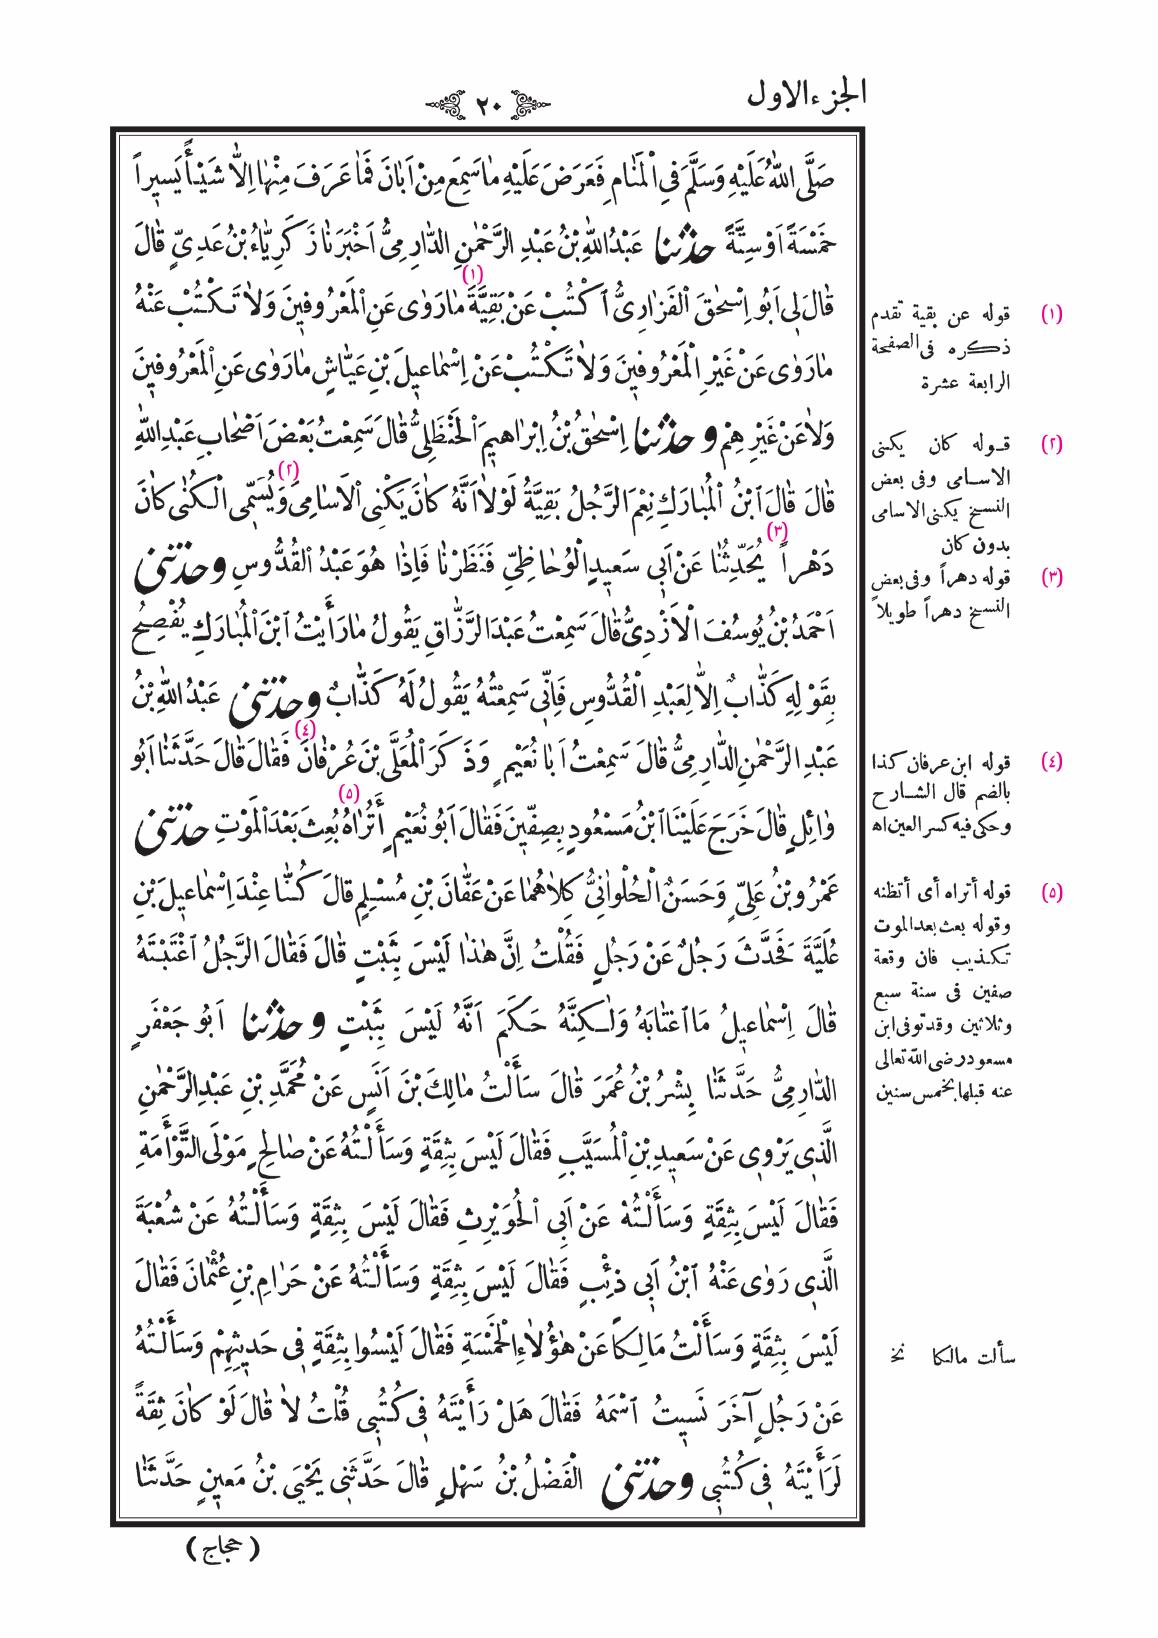 الجزء الاول
٢٠
صَلَّى اللّٰهُ عَلَيْهِ وَسَلَّمَ فِي الْمَنَامِ فَعَرَضَ عَلَيْهِ مَا سَمِعَ مِنْ اَبَانَ فَمَا عَرَفَ مِنْهَا اِلَّا شَيْـأً يَسِيراً
خَمْسَةً اَوْ سِتَّةً حدثنا عَبْدُ اللّٰهِ بْنُ عَبْدِ الرَّحْمٰنِ الدَّارِمِىُّ اَخْبَرَنَا زَكَرِيَّاءُ بْنُ عَدِىٍّ قَالَ
قَالَ لِى اَبُو اِسْحٰقَ الْفَزَارِىُّ اُكْتُبْ عَنْ بَقِيَّةَ (١) مَا رَوٰى عَنِ الْمَعْرُوفِينَ وَلَا تَكْتُبْ عَنْهُ
مَا رَوٰى عَنْ غَيْرِ الْمَعْرُوفِينَ وَلَا تَكْتُبْ عَنْ اِسْمَاعِيلَ بْنِ عَيَّاشٍ مَا رَوٰى عَنِ الْمَعْرُوفِينَ
وَلَا عَنْ غَيْرِهِمْ و حدثنا اِسْحٰقُ بْنُ اِبْرَاهِيمَ الْحَنْظَلِىُّ قَالَ سَمِعْتُ بَعْضَ اَصْحَابِ عَبْدِ اللّٰهِ
قَالَ قَالَ ابْنُ الْمُبَارَكِ نِعْمَ الرَّجُلُ بَقِيَّةُ لَوْلَا اَنَّهُ كَانَ يَكْنِى الْاَسَامِىَ (٢) وَيُسَمِّى الْكُنٰى كَانَ
دَهْراً (٣) يُحَدِّثُنَا عَنْ اَبِى سَعِيدٍ الْوُحَاظِىِّ فَنَظَرْنَا فَاِذَا هُوَ عَبْدُ الْقُدُّوسِ وحدثنى
اَحْمَدُ بْنُ يُوسُفَ الْاَزْدِىُّ قَالَ سَمِعْتُ عَبْدَ الرَّزَّاقِ يَقُولُ مَا رَأَيْتُ ابْنَ الْمُبَارَكِ يُفْصِحُ
بِقَوْلِهِ كَذَّابٌ اِلَّا لِعَبْدِ الْقُدُّوسِ فَاِنِّى سَمِعْتُهُ يَقُولُ لَهُ كَذَّابٌ وحدثنى عَبْدُ اللّٰهِ بْنُ
عَبْدِ الرَّحْمٰنِ الدَّارِمِىُّ قَالَ سَمِعْتُ اَبَا نُعَيْمٍ وَذَكَرَ الْمُعَلَّى بْنَ عُرْفَانَ (٤) فَقَالَ قَالَ حَدَّثَنَا اَبُو
وَائِلٍ قَالَ خَرَجَ عَلَيْنَا ابْنُ مَسْعُودٍ بِصِفِّينَ فَقَالَ اَبُو نُعَيْمٍ أَتُرَاهُ (٥) بُعِثَ بَعْدَ الْمَوْتِ حدثنى
عَمْرُو بْنُ عَلِىٍّ وَحَسَنٌ الْحُلْوَانِىُّ كِلَاهُمَا عَنْ عَفَّانَ بْنِ مُسْلِمٍ قَالَ كُنَّا عِنْدَ اِسْمَاعِيلَ بْنِ
عُلَيَّةَ فَحَدَّثَ رَجُلٌ عَنْ رَجُلٍ فَقُلْتُ اِنَّ هٰذَا لَيْسَ بِثَبْتٍ قَالَ فَقَالَ الرَّجُلُ اغْتَبْتَهُ
قَالَ اِسْمَاعِيلُ مَا اغْتَابَهُ وَلٰكِنَّهُ حَكَمَ اَنَّهُ لَيْسَ بِثَبْتٍ و حدثنا اَبُو جَعْفَرٍ
الدَّارِمِىُّ حَدَّثَنَا بِشْرُ بْنُ عُمَرَ قَالَ سَأَلْتُ مَالِكَ بْنَ اَنَسٍ عَنْ مُحَمَّدِ بْنِ عَبْدِ الرَّحْمٰنِ
الَّذِى يَرْوِى عَنْ سَعِيدِ بْنِ الْمُسَيَّبِ فَقَالَ لَيْسَ بِثِقَةٍ وَسَأَلْتُهُ عَنْ صَالِحٍ مَوْلَى التَّوْأَمَةِ
فَقَالَ لَيْسَ بِثِقَةٍ وَسَأَلْتُهُ عَنْ اَبِى الْحُوَيْرِثِ فَقَالَ لَيْسَ بِثِقَةٍ وَسَأَلْتُهُ عَنْ شُعْبَةَ
الَّذِى رَوٰى عَنْهُ ابْنُ اَبِى ذِئْبٍ فَقَالَ لَيْسَ بِثِقَةٍ وَسَأَلْتُهُ عَنْ حَرَامِ بْنِ عُثْمَانَ فَقَالَ
لَيْسَ بِثِقَةٍ وَسَأَلْتُ مَالِكاً عَنْ هٰؤُلَاءِ الْخَمْسَةِ فَقَالَ لَيْسُوا بِثِقَةٍ فِى حَدِيثِهِمْ وَسَأَلْتُهُ
عَنْ رَجُلٍ آخَرَ نَسِيتُ اسْمَهُ فَقَالَ هَلْ رَأَيْتَهُ فِى كُتُبِى قُلْتُ لَا قَالَ لَوْ كَانَ ثِقَةً
لَرَأَيْتَهُ فِى كُتُبِى وحدثنى الْفَضْلُ بْنُ سَهْلٍ قَالَ حَدَّثَنِى يَحْيَى بْنُ مَعِينٍ حَدَّثَنَا
( حجاج )
(١) قوله عن بقية تقدم
ذكره فى الصفحة
الرابعة عشرة
(٢) قوله كان يكنى
الاسامى وفى بعض
النسخ يكنى الاسامى
بدون كان
(٣) قوله دهراً وفى بعض
النسخ دهراً طويلاً
(٤) قوله ابن عرفان كذا
بالضم قال الشارح
وحكى فيه كسر العين اه
(٥) قوله أتراه أى أتظنه
وقوله بعث بعد الموت
تكذيب فان وقعة
صفين فى سنة سبع
وثلاثين وقد توفى ابن
مسعود رضى الله تعالى
عنه قبلها بخمس سنين
سألت مالكا نخ